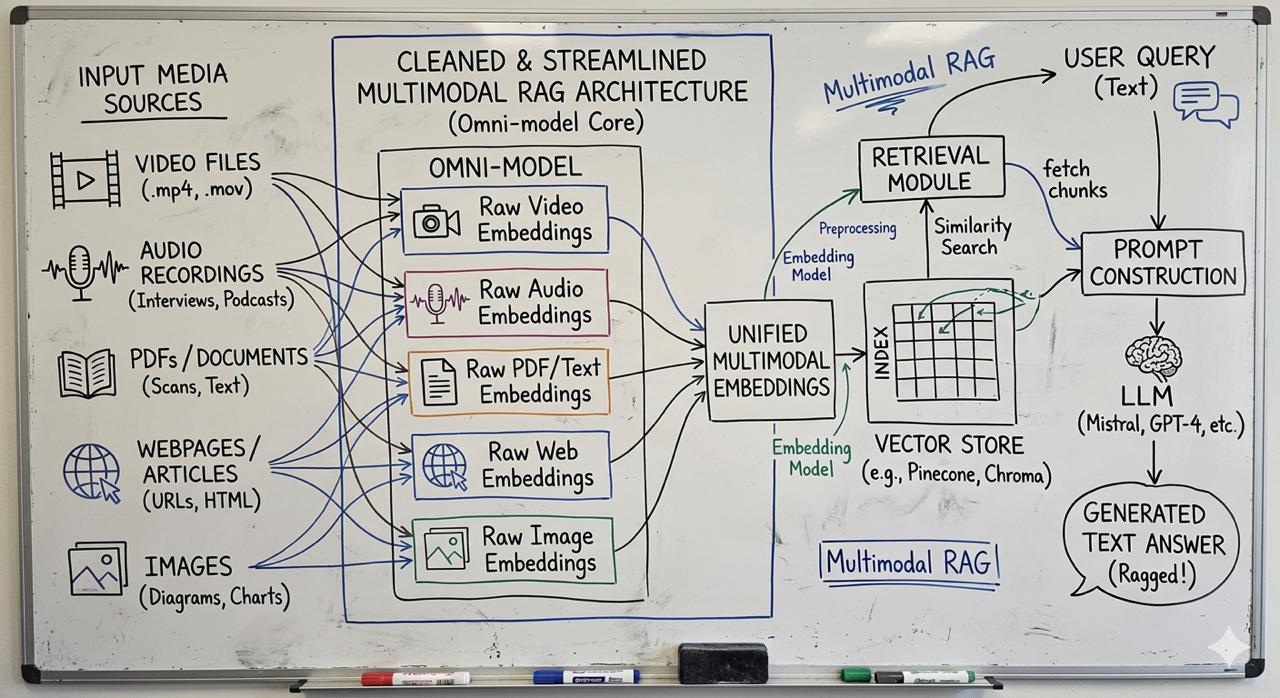 INPUT MEDIA
SOURCES
VIDEO FILES
(.mp4, .mov)
AUDIO
RECORDINGS
(Interviews, Podcasts)
PDFs/DOCUMENTS
(Scans, Text)
WEBPAGES/
ARTICLES
(URLs, HTML)
IMAGES
(Diagrams, Charts)
CLEANED & STREAMLINED
MULTIMODAL RAG ARCHITECTURE
(Omni-model Core)
OMNI-MODEL
Raw Video
Embeddings
Raw Audio
Embeddings
Raw PDF/Text
Embeddings
Raw Web
Embeddings
Raw Image
Embeddings
UNIFIED
MULTIMODAL
EMBEDDINGS
Preprocessing
Embedding
Model
Embedding
Model
Multimodal RAG
RETRIEVAL
MODULE
Similarity
Search
INDEX
VECTOR STORE
(e.g., Pinecone, Chroma)
Multimodal RAG
USER QUERY
(Text)
fetch
chunks
PROMPT
CONSTRUCTION
LLM
(Mistral, GPT-4, etc.)
GENERATED
TEXT ANSWER
(Ragged!)